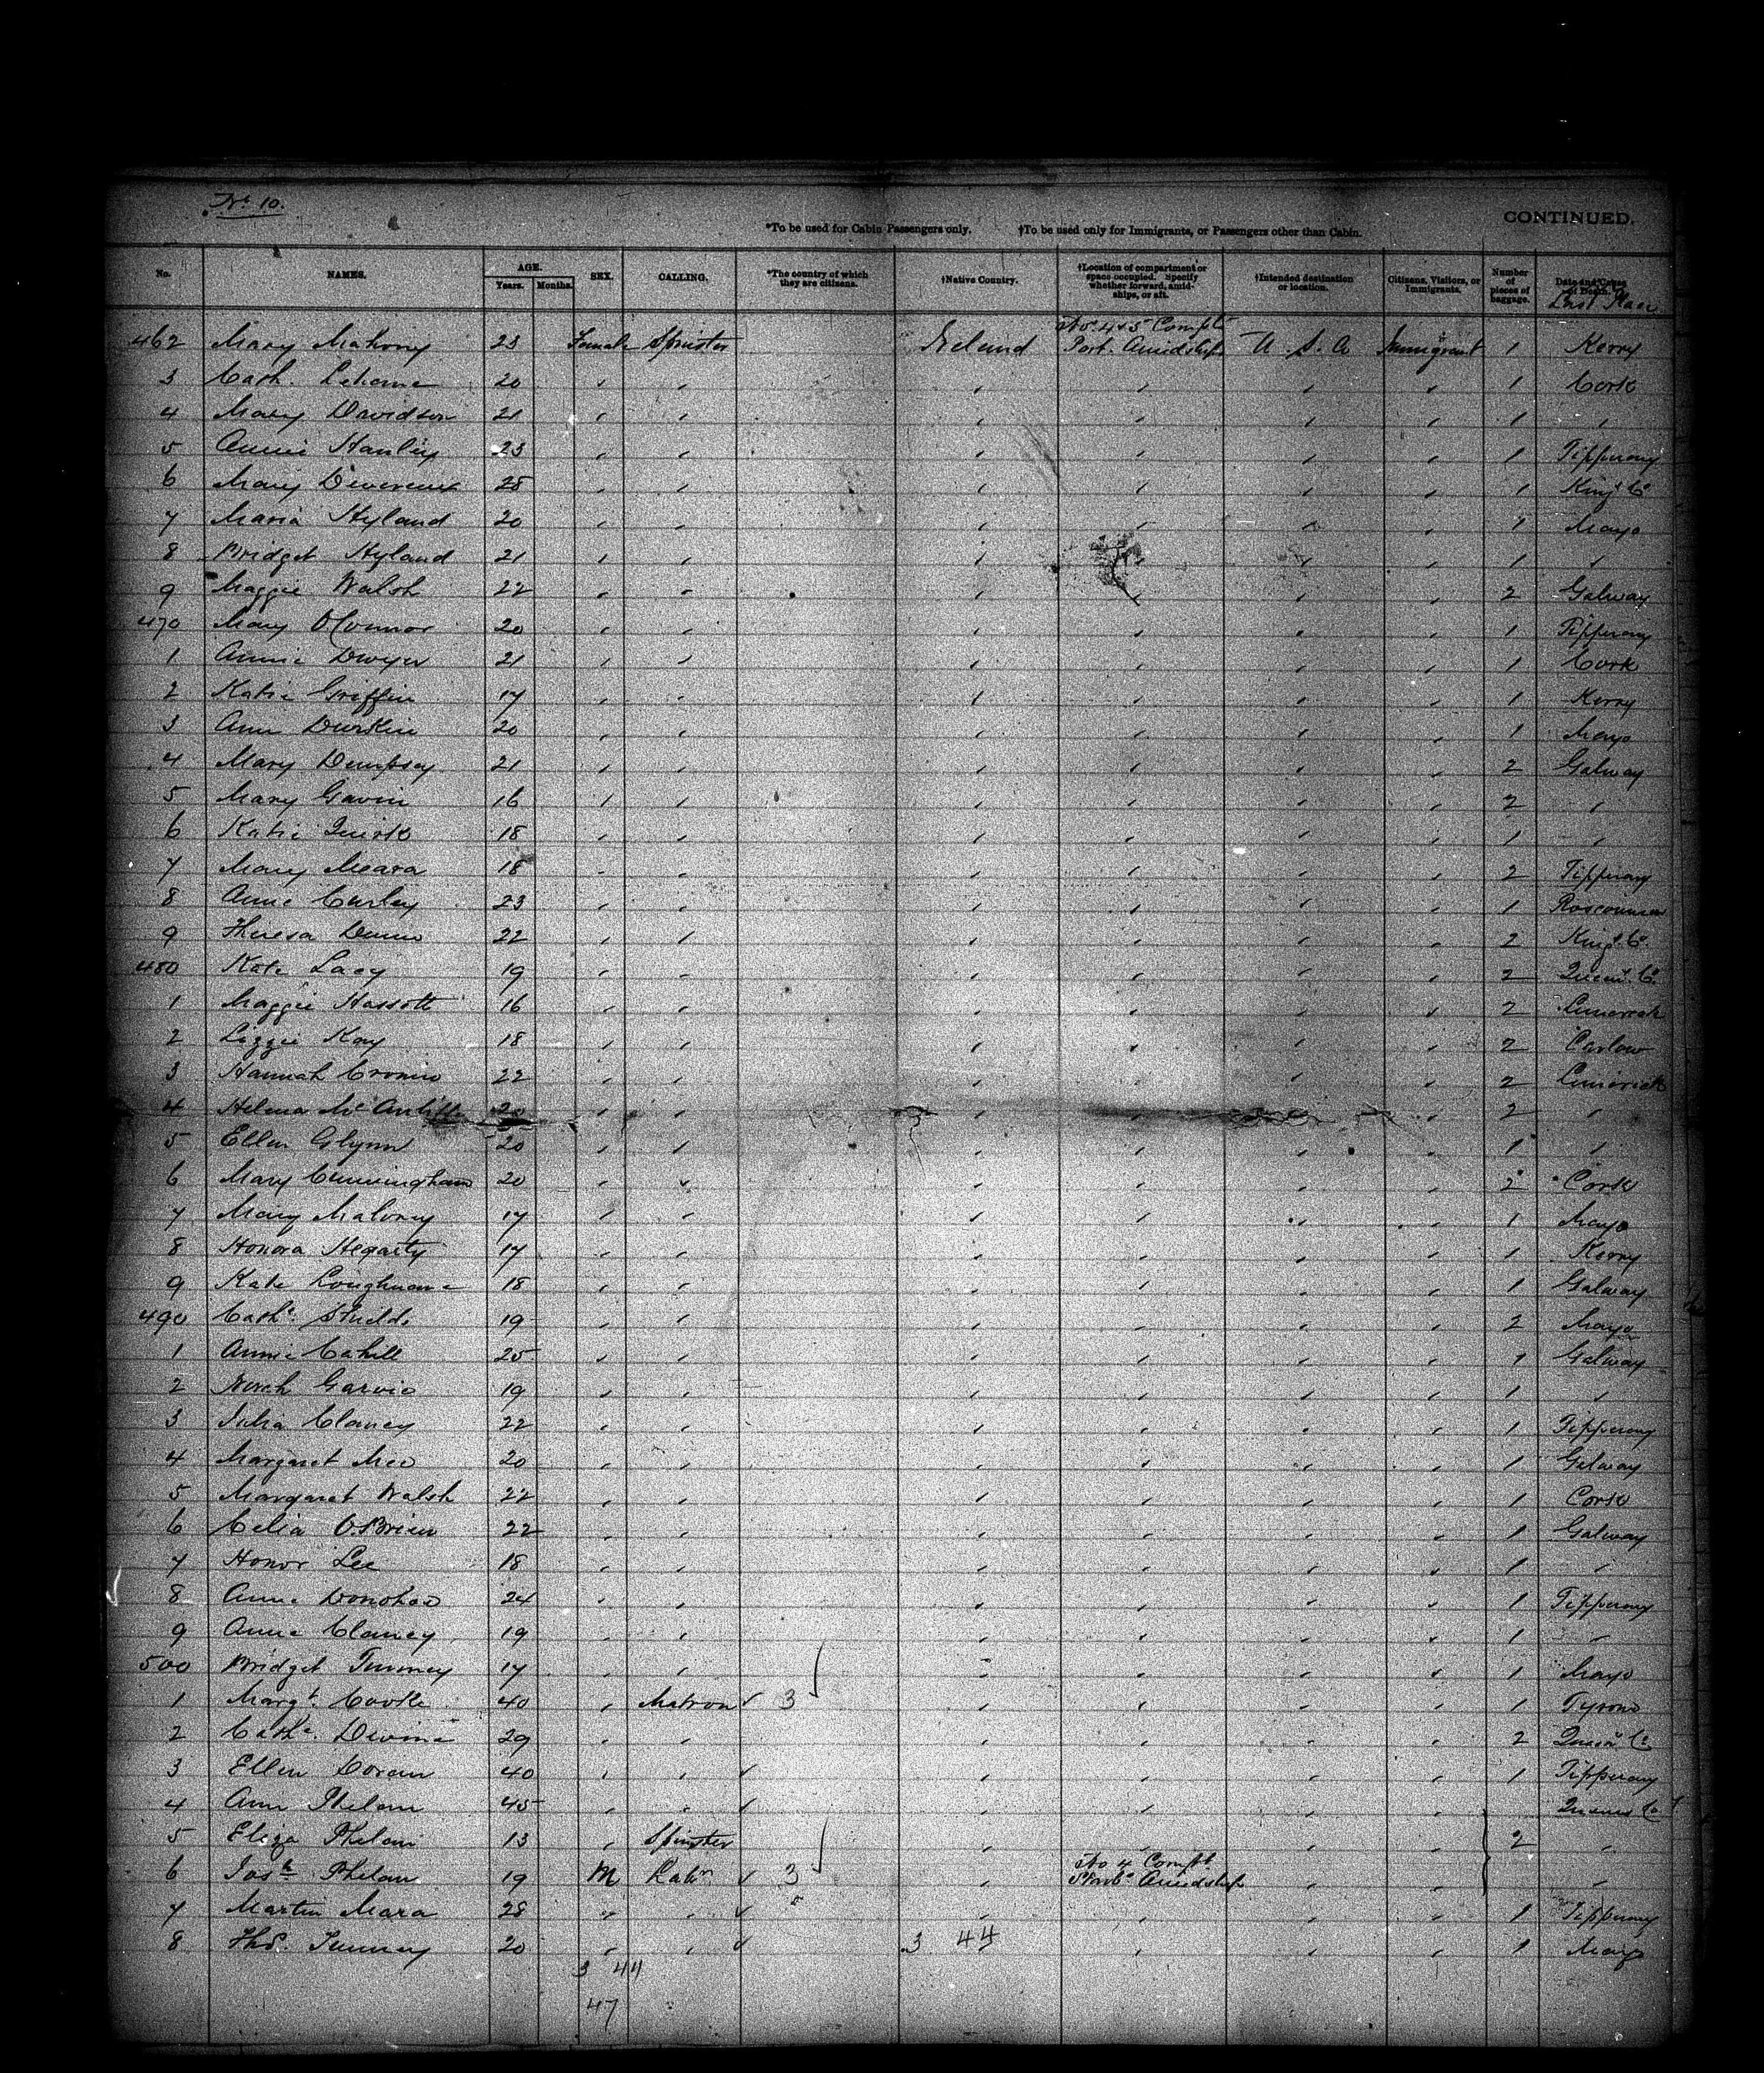 No. 10.
CONTINUED.
*To be used for Cabin Passengers only. †To be used only for Immigrants, or Passengers other than Cabin.
No. NAMES. AGE. Years. Months. SEX. CALLING. *The country of which they are citizens. †Native Country. †Location of compartment or space occupied. Specify whether forward, amidships, or aft. †Intended destination or location. Citizens, Visitors, or Immigrants. Number of pieces of baggage. Date and Cause of Death. Last Place
No. 4 & 5 Compt
462 Mary Mahony 23 Female Spinster Ireland Port. Amidships U. S. A Immigrant 1 Kerry
3 Cath. Lehane 20 " " " " " " 1 Cork
4 Mary Davidson 21 " " " " " " 1 "
5 Annie Hanley 23 " " " " " " 1 Tipperary
6 Mary Devereux 25 " " " " " " 1 Kings Co
7 Maria Hyland 20 " " " " " " 1 Mayo
8 Bridget Hyland 21 " " " " " " 1 "
9 Maggie Walsh 22 " " " " " " 2 Galway
470 Mary O'Connor 20 " " " " " " 1 Tipperary
1 Annie Dwyer 21 " " " " " " 1 Cork
2 Katie Griffin 17 " " " " " " 1 Kerry
3 Ann Durkin 20 " " " " " " 1 Mayo
4 Mary Dempsey 21 " " " " " " 2 Galway
5 Mary Gavin 16 " " " " " " 2 "
6 Katie Quirk 18 " " " " " " 1 "
7 Mary Meara 18 " " " " " " 2 Tipperary
8 Anne Curley 23 " " " " " " 1 Roscommon
9 Theresa Dunne 22 " " " " " " 2 Kings Co
480 Kate Lacy 19 " " " " " " 2 Queens Co.
1 Maggie Hassett 16 " " " " " " 2 Limerick
2 Lizzie Kay 18 " " " " " " 2 Carlow
3 Hannah Cronin 22 " " " " " " 2 Limerick
4 Helena McAuliffe 20 " " " " " " 2 "
5 Ellen Glynn 20 " " " " " " 1 "
6 Mary Cunningham 20 " " " " " " 2 Cork
7 Mary Maloney 17 " " " " " " 1 Mayo
8 Honora Hegarty 17 " " " " " " 1 Kerry
9 Kate Loughnane 18 " " " " " " 1 Galway
490 Cathe. Shields 19 " " " " " " 2 Mayo
1 Annie Cahill 25 " " " " " " 1 Galway
2 Norah Garvie 19 " " " " " " 1 "
3 Julia Clancy 22 " " " " " " 1 Tipperary
4 Margaret Mee 20 " " " " " " 1 Galway
5 Margaret Walsh 22 " " " " " " 1 Cork
6 Celia O'Brien 22 " " " " " " 1 Galway
7 Honor Lee 18 " " " " " " 1 "
8 Anne Donohoe 24 " " " " " " 1 Tipperary
9 Anne Clancy 19 " " " " " " 1 "
500 Bridget Tunney 17 " " " " " " 1 Mayo
1 Margt. Cooke 40 " Matron 3 " " " " 1 Tyrone
2 Cathe. Devine 29 " " " " " " 2 Queens Co
3 Ellen Doran 40 " " " " " " 1 Tipperary
4 Ann Phelan 45 " " " " " " Queens Co
5 Eliza Phelan 13 " Spinster " " " " 2 "
No 4 Compt.
6 Josh Phelan 19 M Labr 3 " Starbd Amidships " " "
7 Martin Mara 28 " " " " " " 1 Tipperary
8 Thos. Tunney 20 " " 3 44 " " " 1 Mayo
3 44
47